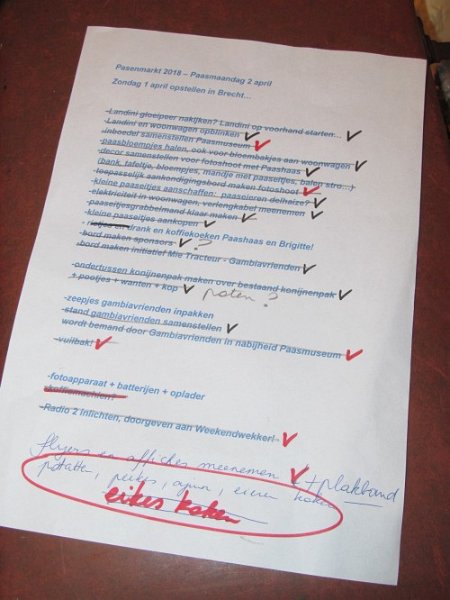 Pasenmarkt 2018 – Paasmaandag 2 april
Zondag 1 april opstellen in Brecht...
-Landini gloeipeer nakijken? Landini op voorhand starten...
-Landini en woonwagen opblinken
-inboedel samenstellen Paasmuseum
-paasbloempjes halen, ook voor bloembakjes aan woonwagen
-decor samenstellen voor fotoshoot met Paashaas
(bank, tafeltje, bloempjes, mandje met paaseitjes, balen stro...)
-toepasselijk aankondigingsbord maken fotoshoot
-kleine paaseitjes aanschaffen: paaseieren delhaize?
-elektriciteit in woonwagen, verlengkabel meenemen
-paaseitjesgrabbelmand klaar maken
-kleine paaseitjes aankopen
- en drank en koffiekoeken Paashaas en Brigitte!
-bord maken sponsors ?
-bord maken initiatief Mie Tracteur - Gambiavrienden
-ondertussen konijnenpak maken over bestaand konijnenpak
+ pootjes + wanten + kop poten ?
-zeepjes gambiavrienden inpakken
-stand gambiavrienden samenstellen
wordt bemand door Gambiavrienden in nabijheid Paasmuseum
-vuilbak!
-fotoapparaat + batterijen + oplader
-koffiemachien?
-Radio 2 inlichten, doorgeven aan Weekendwekker!
flyers en affiches meenemen + plakband
patatten, peekes, ajuin, eieren koken
eikes koken